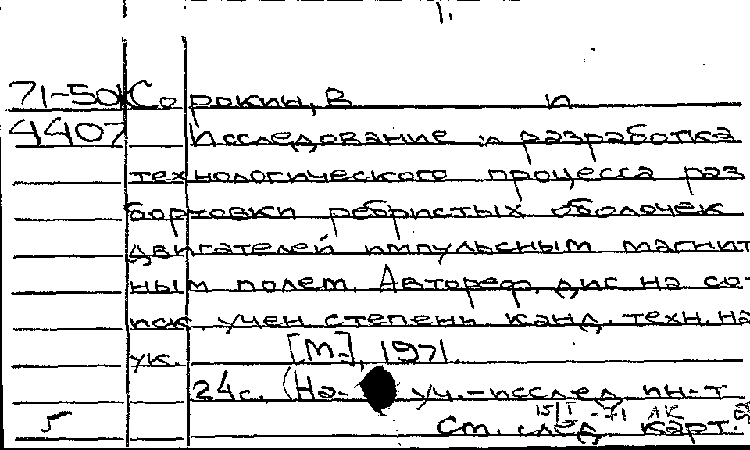 71-50 Сорокин, В П
4407 Исследование и разработка
технологического процесса раз
бортовки ребристых оболочек
двигателей импульсным магнит
ным полем. Автореф. дис. на со-
иск. учен степени канд. техн. на
ук. [М.], 1971.
24с. (На- уч.-исслед ин-т
15/I -71 АК
5 См. след карт.